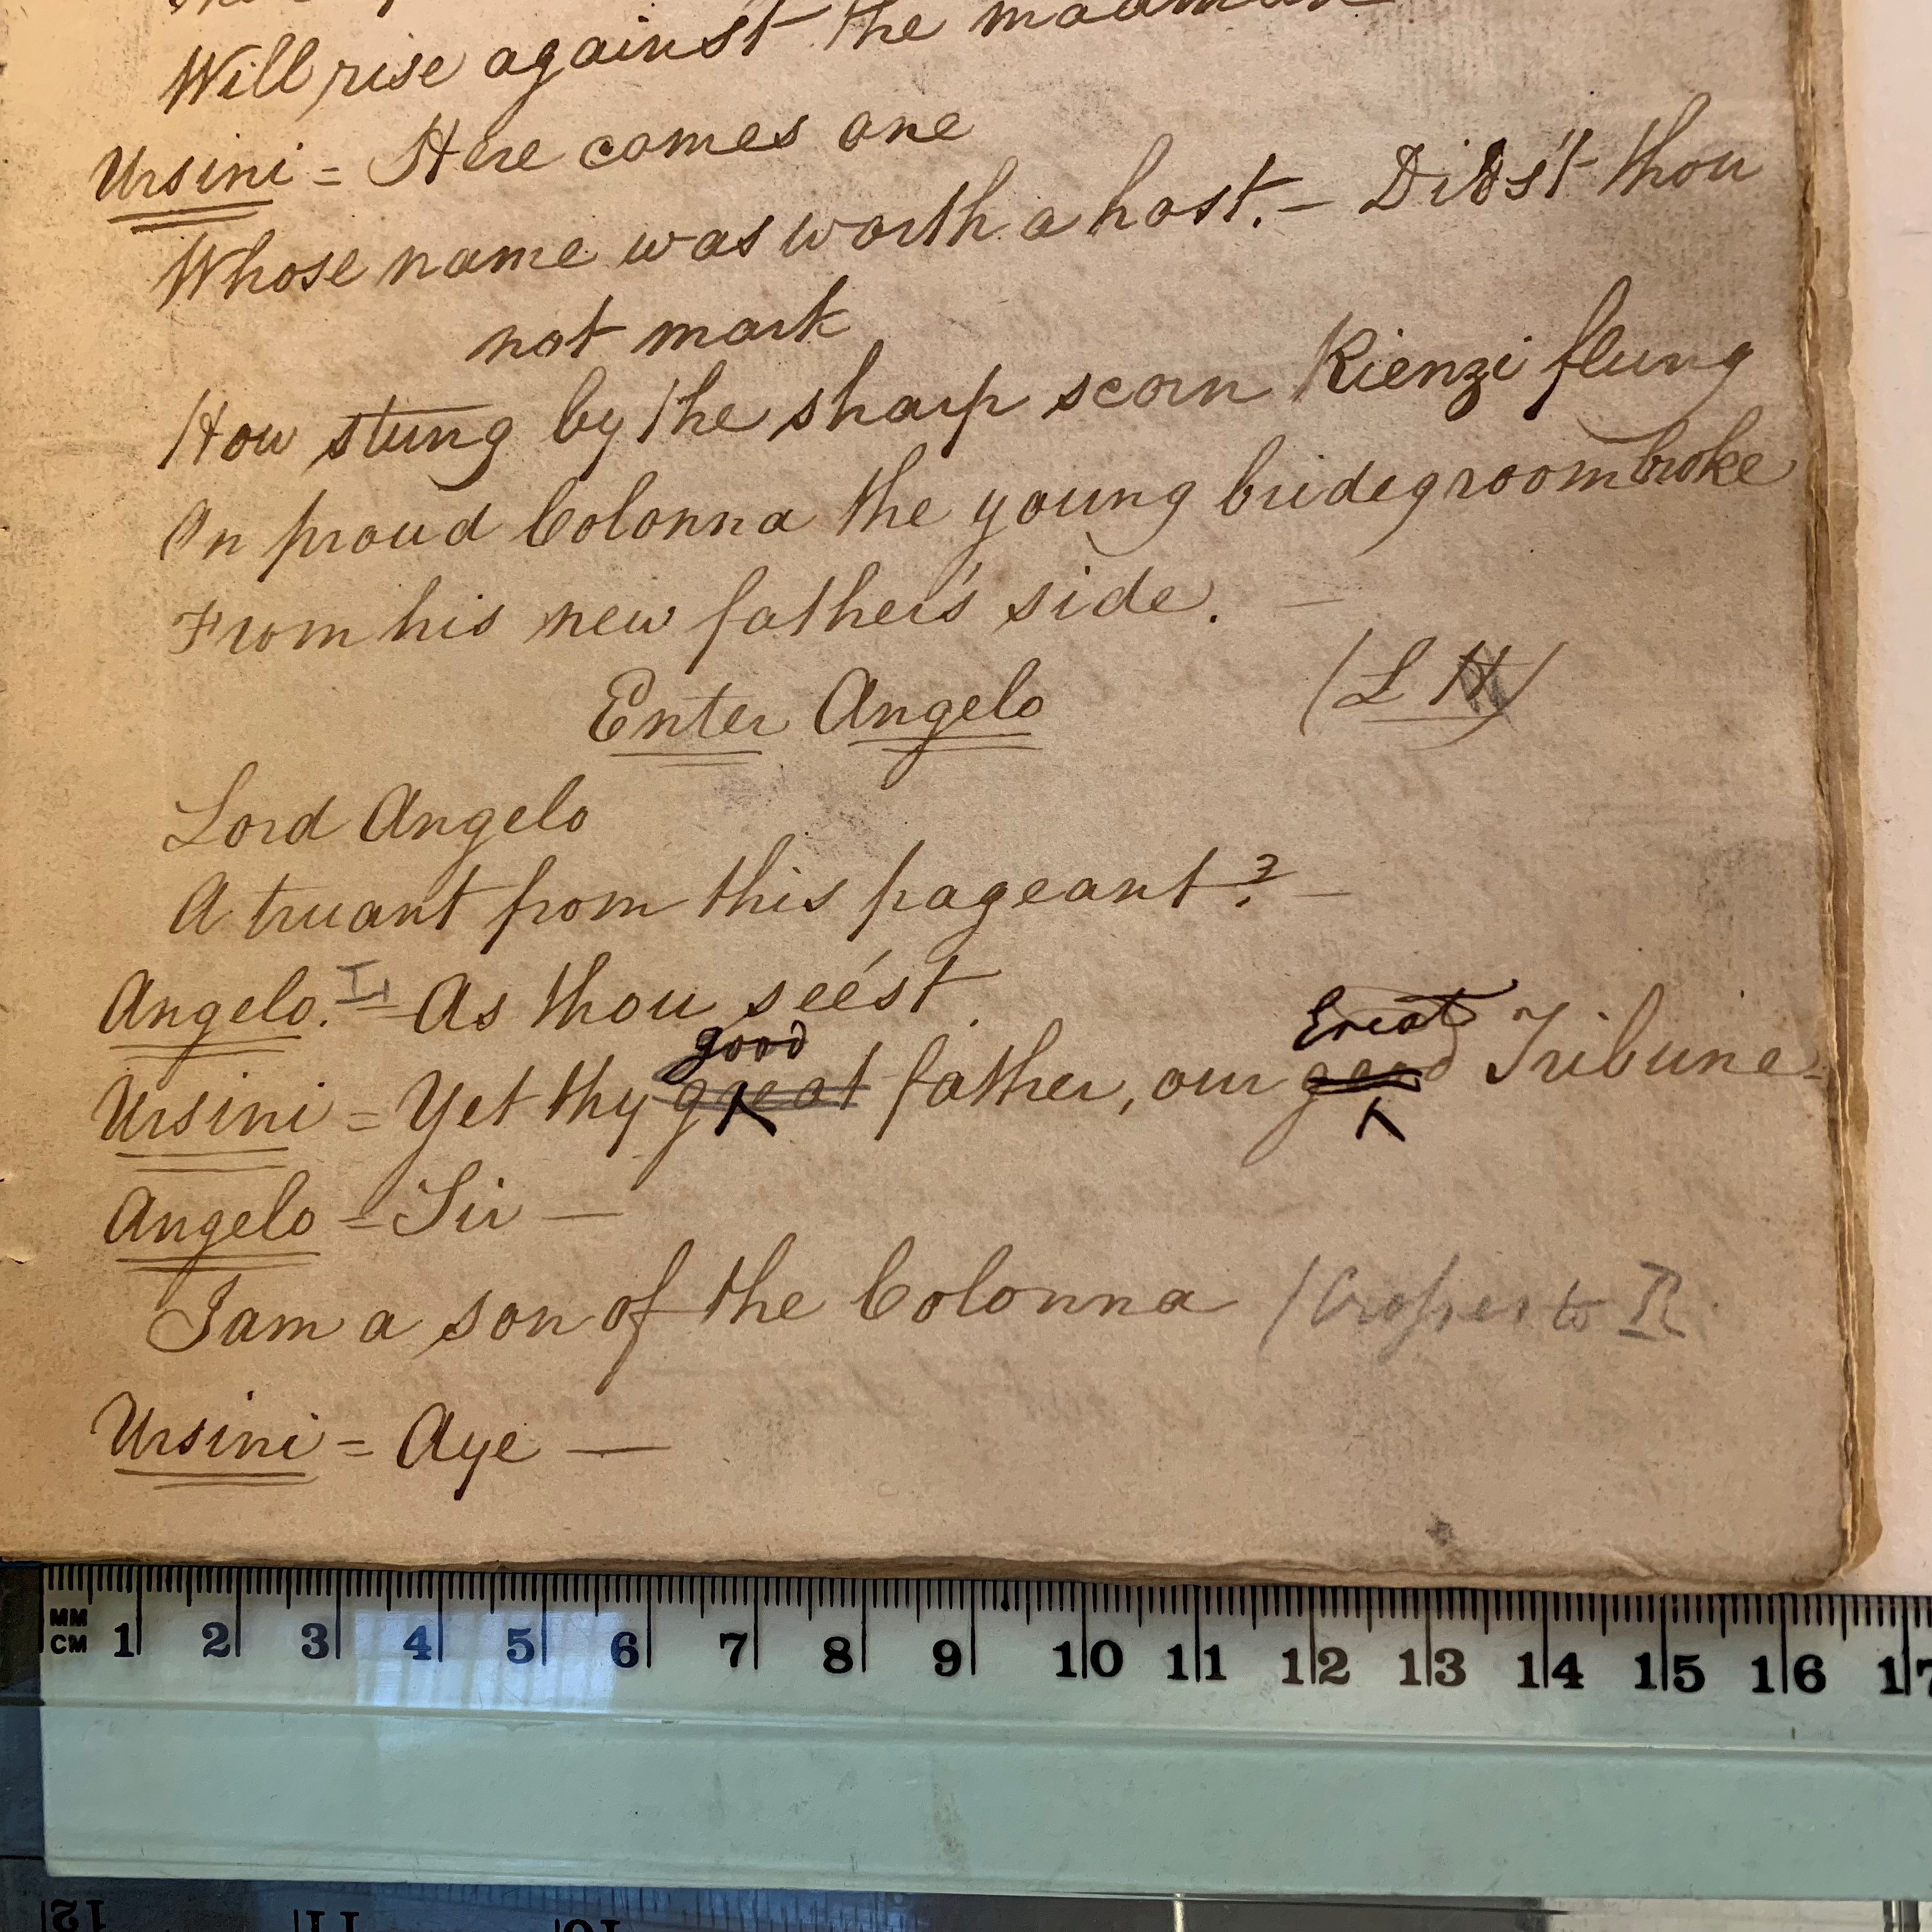 Will rise against the madman
Ursini = Here comes one
Whose name was worth a host. — Dids't thou
not mark
How stung by the sharp scorn Rienzi flung
On proud Colonna the young bridegroom broke
From his new father's side. —
Enter Angelo (L H)
Lord Angelo
A truant from this pageant? —
Angelo. = As thou see'st
good Great
Ursini = Yet thy great father, our good Tribune =
Angelo = Sir —
I am a son of the Colonna (Crosses to R.
Ursini = Aye —
MM
CM 1 2 3 4 5 6 7 8 9 10 11 12 13 14 15 16 17
12 11 10